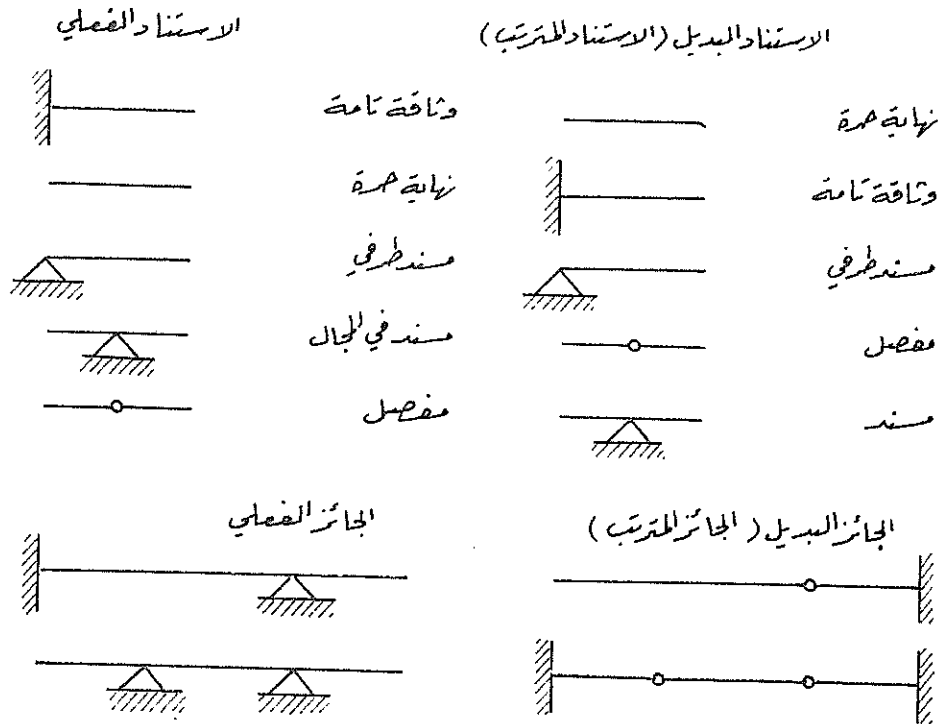 الاستناد الفعلي
الاستناد البديل (الاستناد المترتب)
وثاقة تامة
نهاية حرة
نهاية حرة
وثاقة تامة
مسند طرفي
مسند طرفي
مسند في المجال
مفصل
مفصل
مسند
الجائز الفعلي
الجائز البديل (الجائز المترتب)